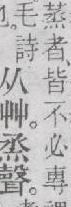 蒸者、皆不必專
毛詩
从艸。烝聲。